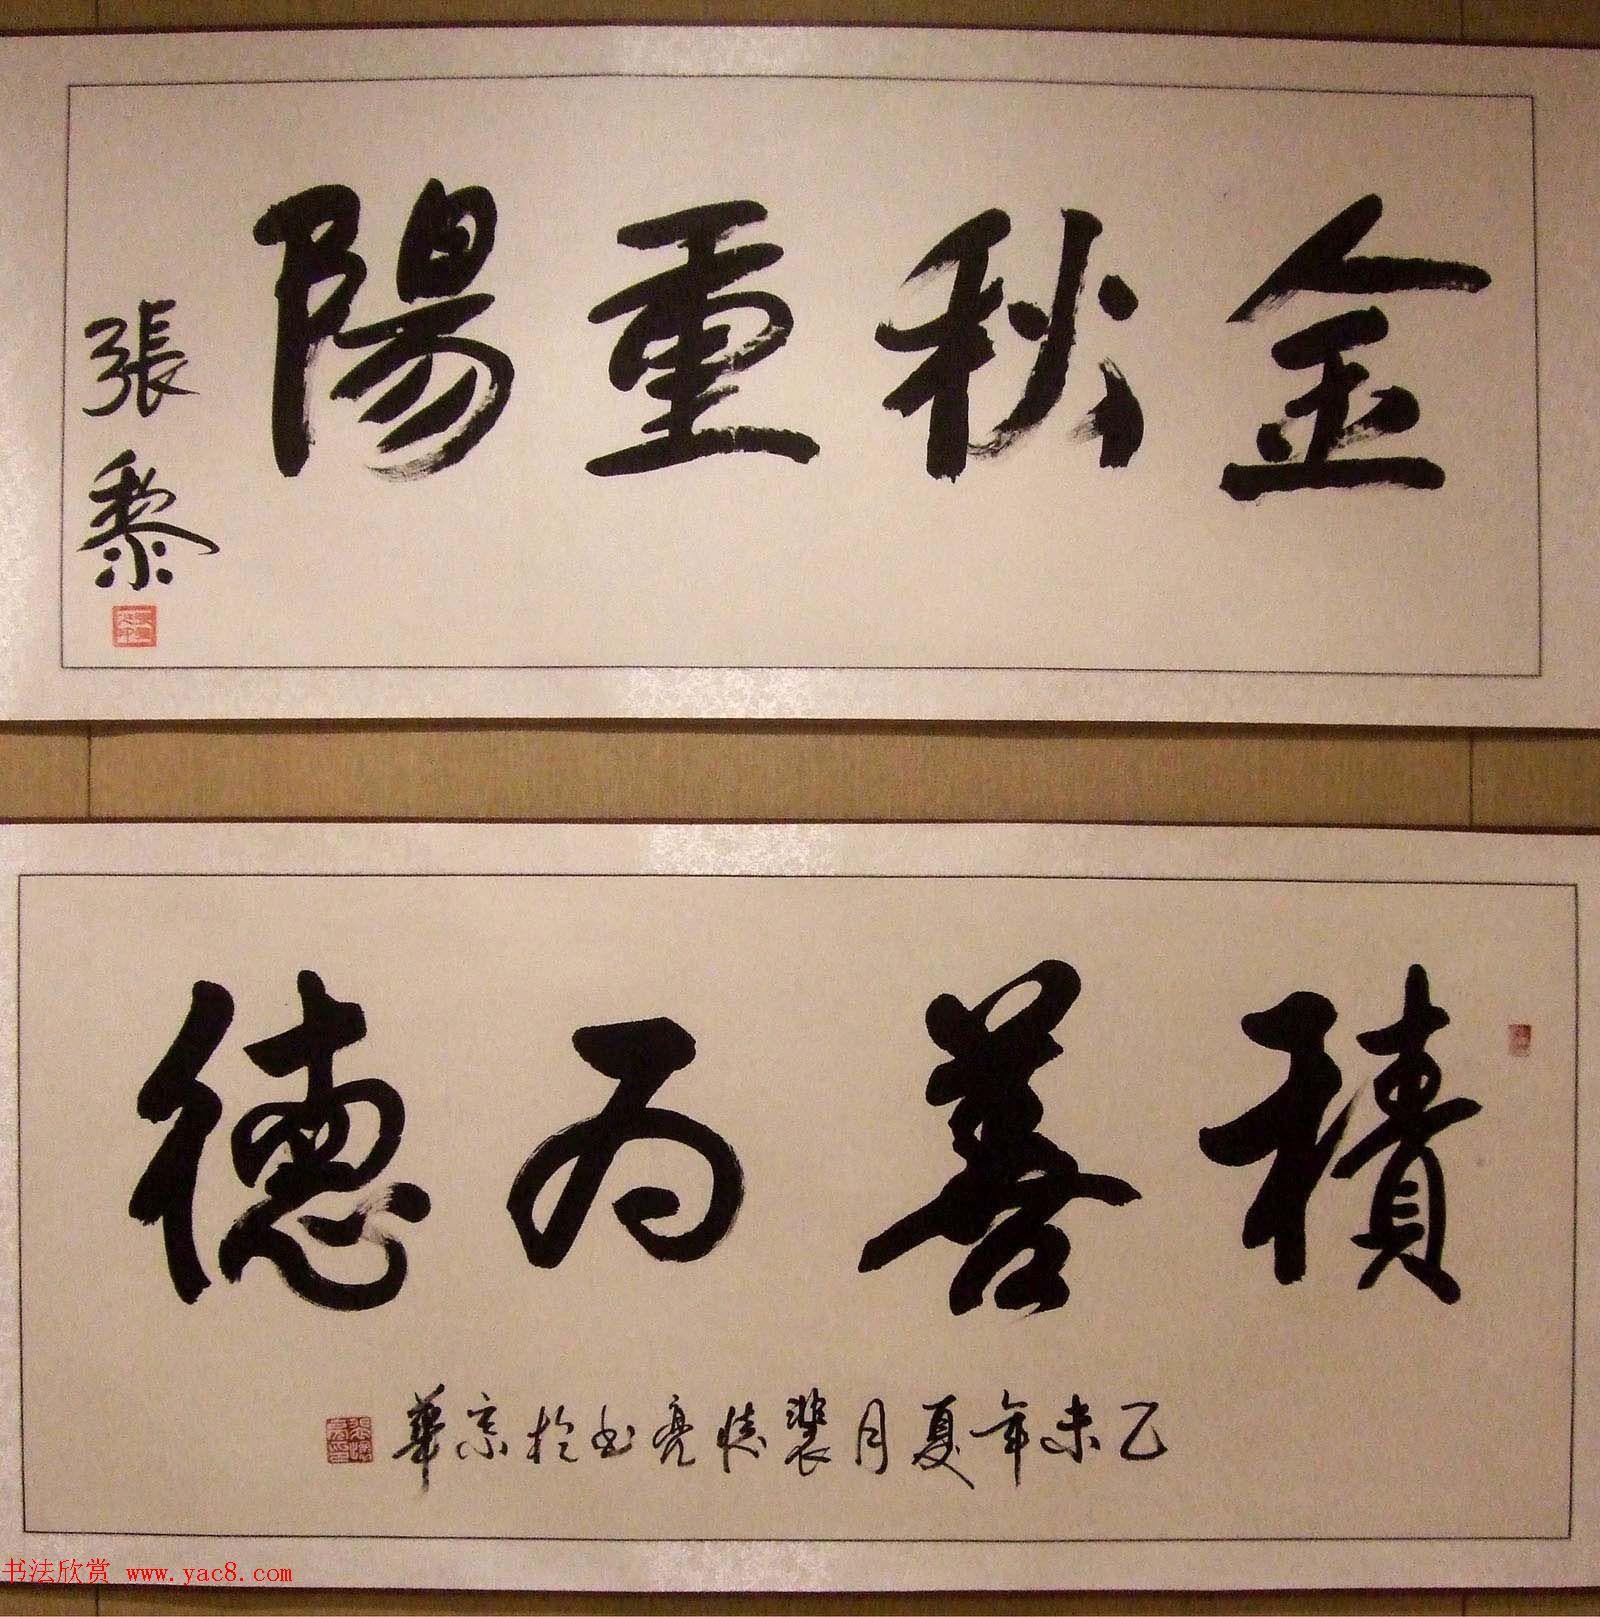 金秋重陽
張黎
積善为德
乙未年夏月裴德亮书於京華
书法欣赏 www.yac8.com